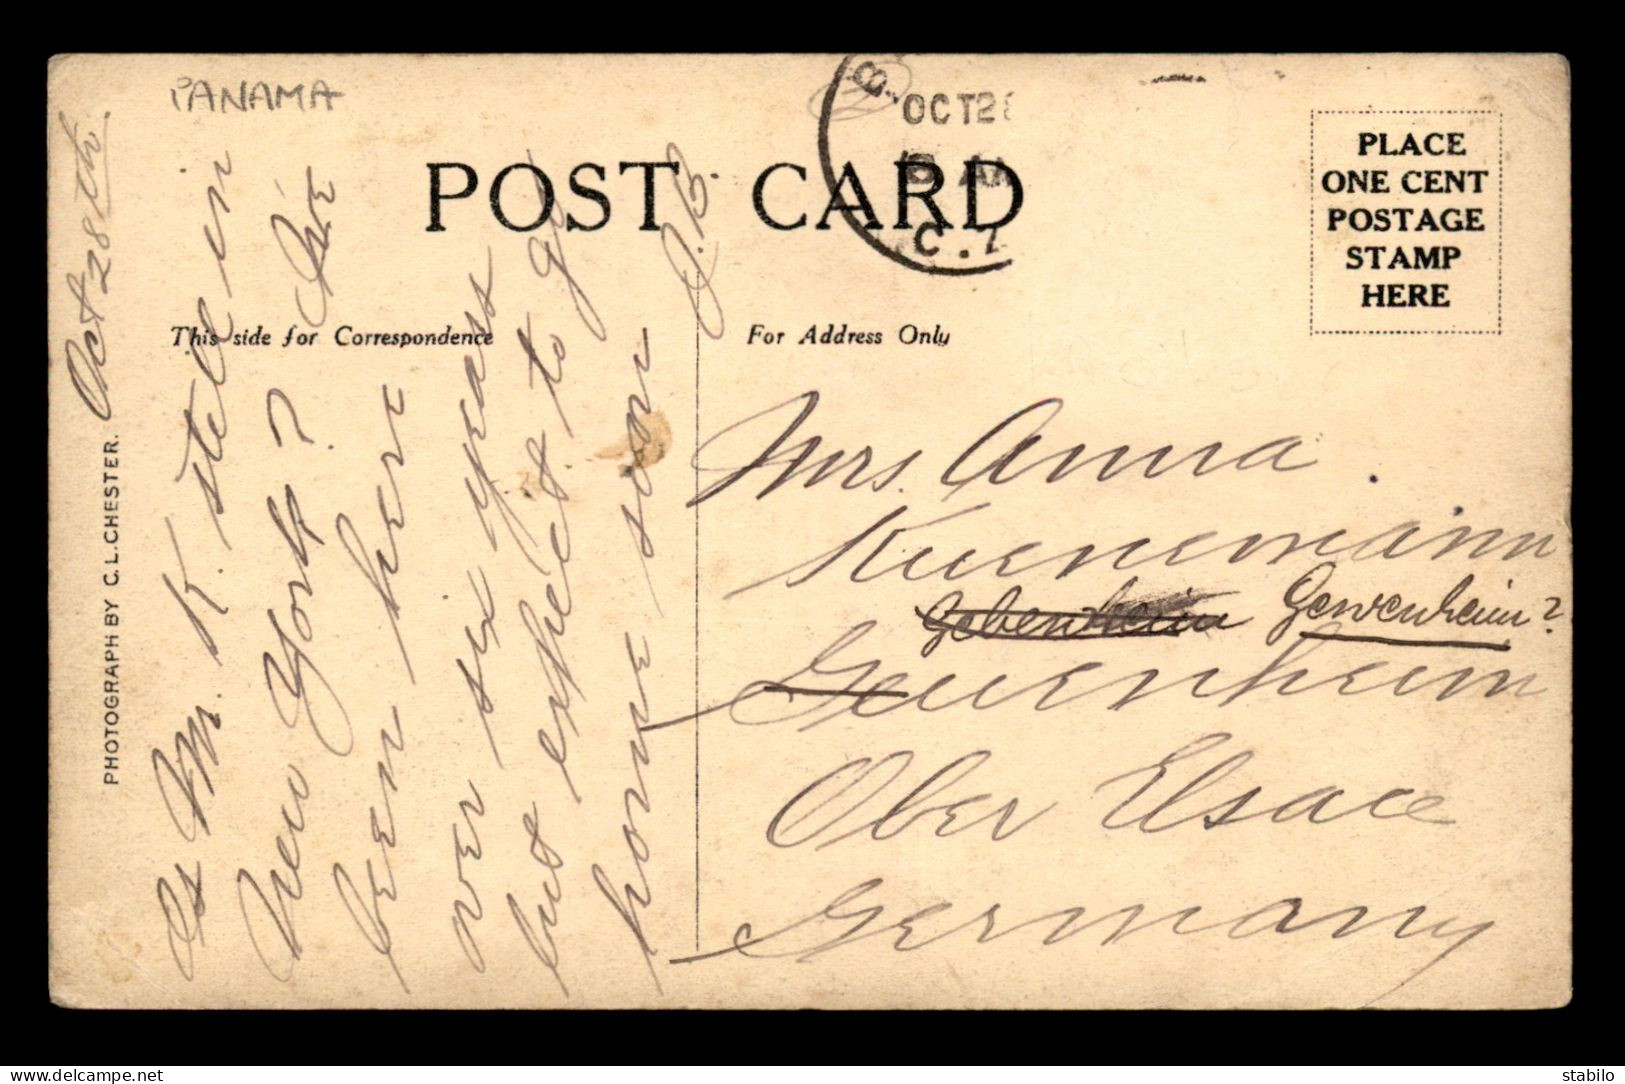 PANAMA
Oct 28th.
B.
OCT 2
AM
C.Z
POST CARD
PLACE
ONE CENT
POSTAGE
STAMP
HERE
This side for Correspondence
For Address Only
PHOTOGRAPH BY C. L. CHESTER.
Is M. K. still in
New York? I've
been here
over six years
but expect to go
home soon
J.B.
Mrs. Anna
Kuenemann
Gebenheim Gewenheim?
Geuenheim
Ober Elsace
Germany
delcampe.net
stabilo